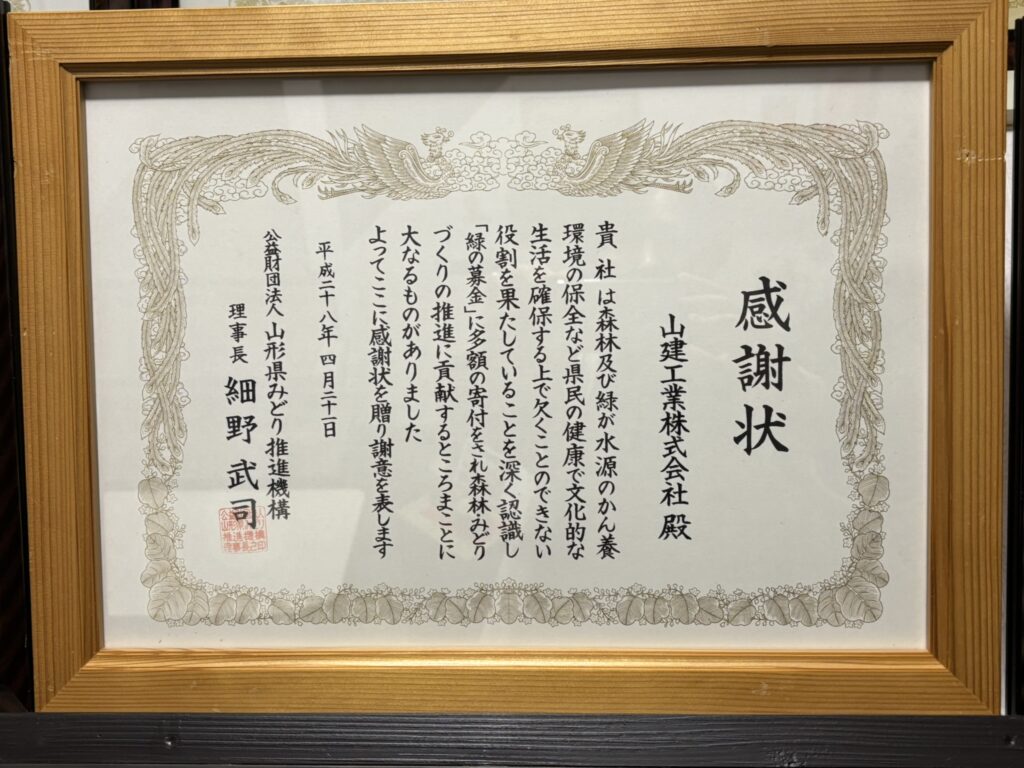 感謝状
山建工業株式会社 殿
貴社は森林及び緑が水源のかん養
環境の保全など県民の健康で文化的な
生活を確保する上で欠くことのできない
役割を果たしていることを深く認識し
「緑の募金」に多額の寄付をされ森林みどり
づくりの推進に貢献するところまことに
大なるものがありました
よってここに感謝状を贈り謝意を表します
平成二十八年 四月二十一日
公益財団法人 山形県みどり推進機構
理事長 細野武司